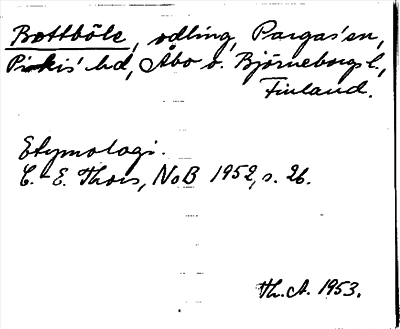 Bottböle, odling, Pargas' sn,
Pikis' hd, Åbo o. Björneborgs l.,
Finland.
Etymologi.
C.-E. Thors, NoB 1952, s. 26.
Th. A. 1953.